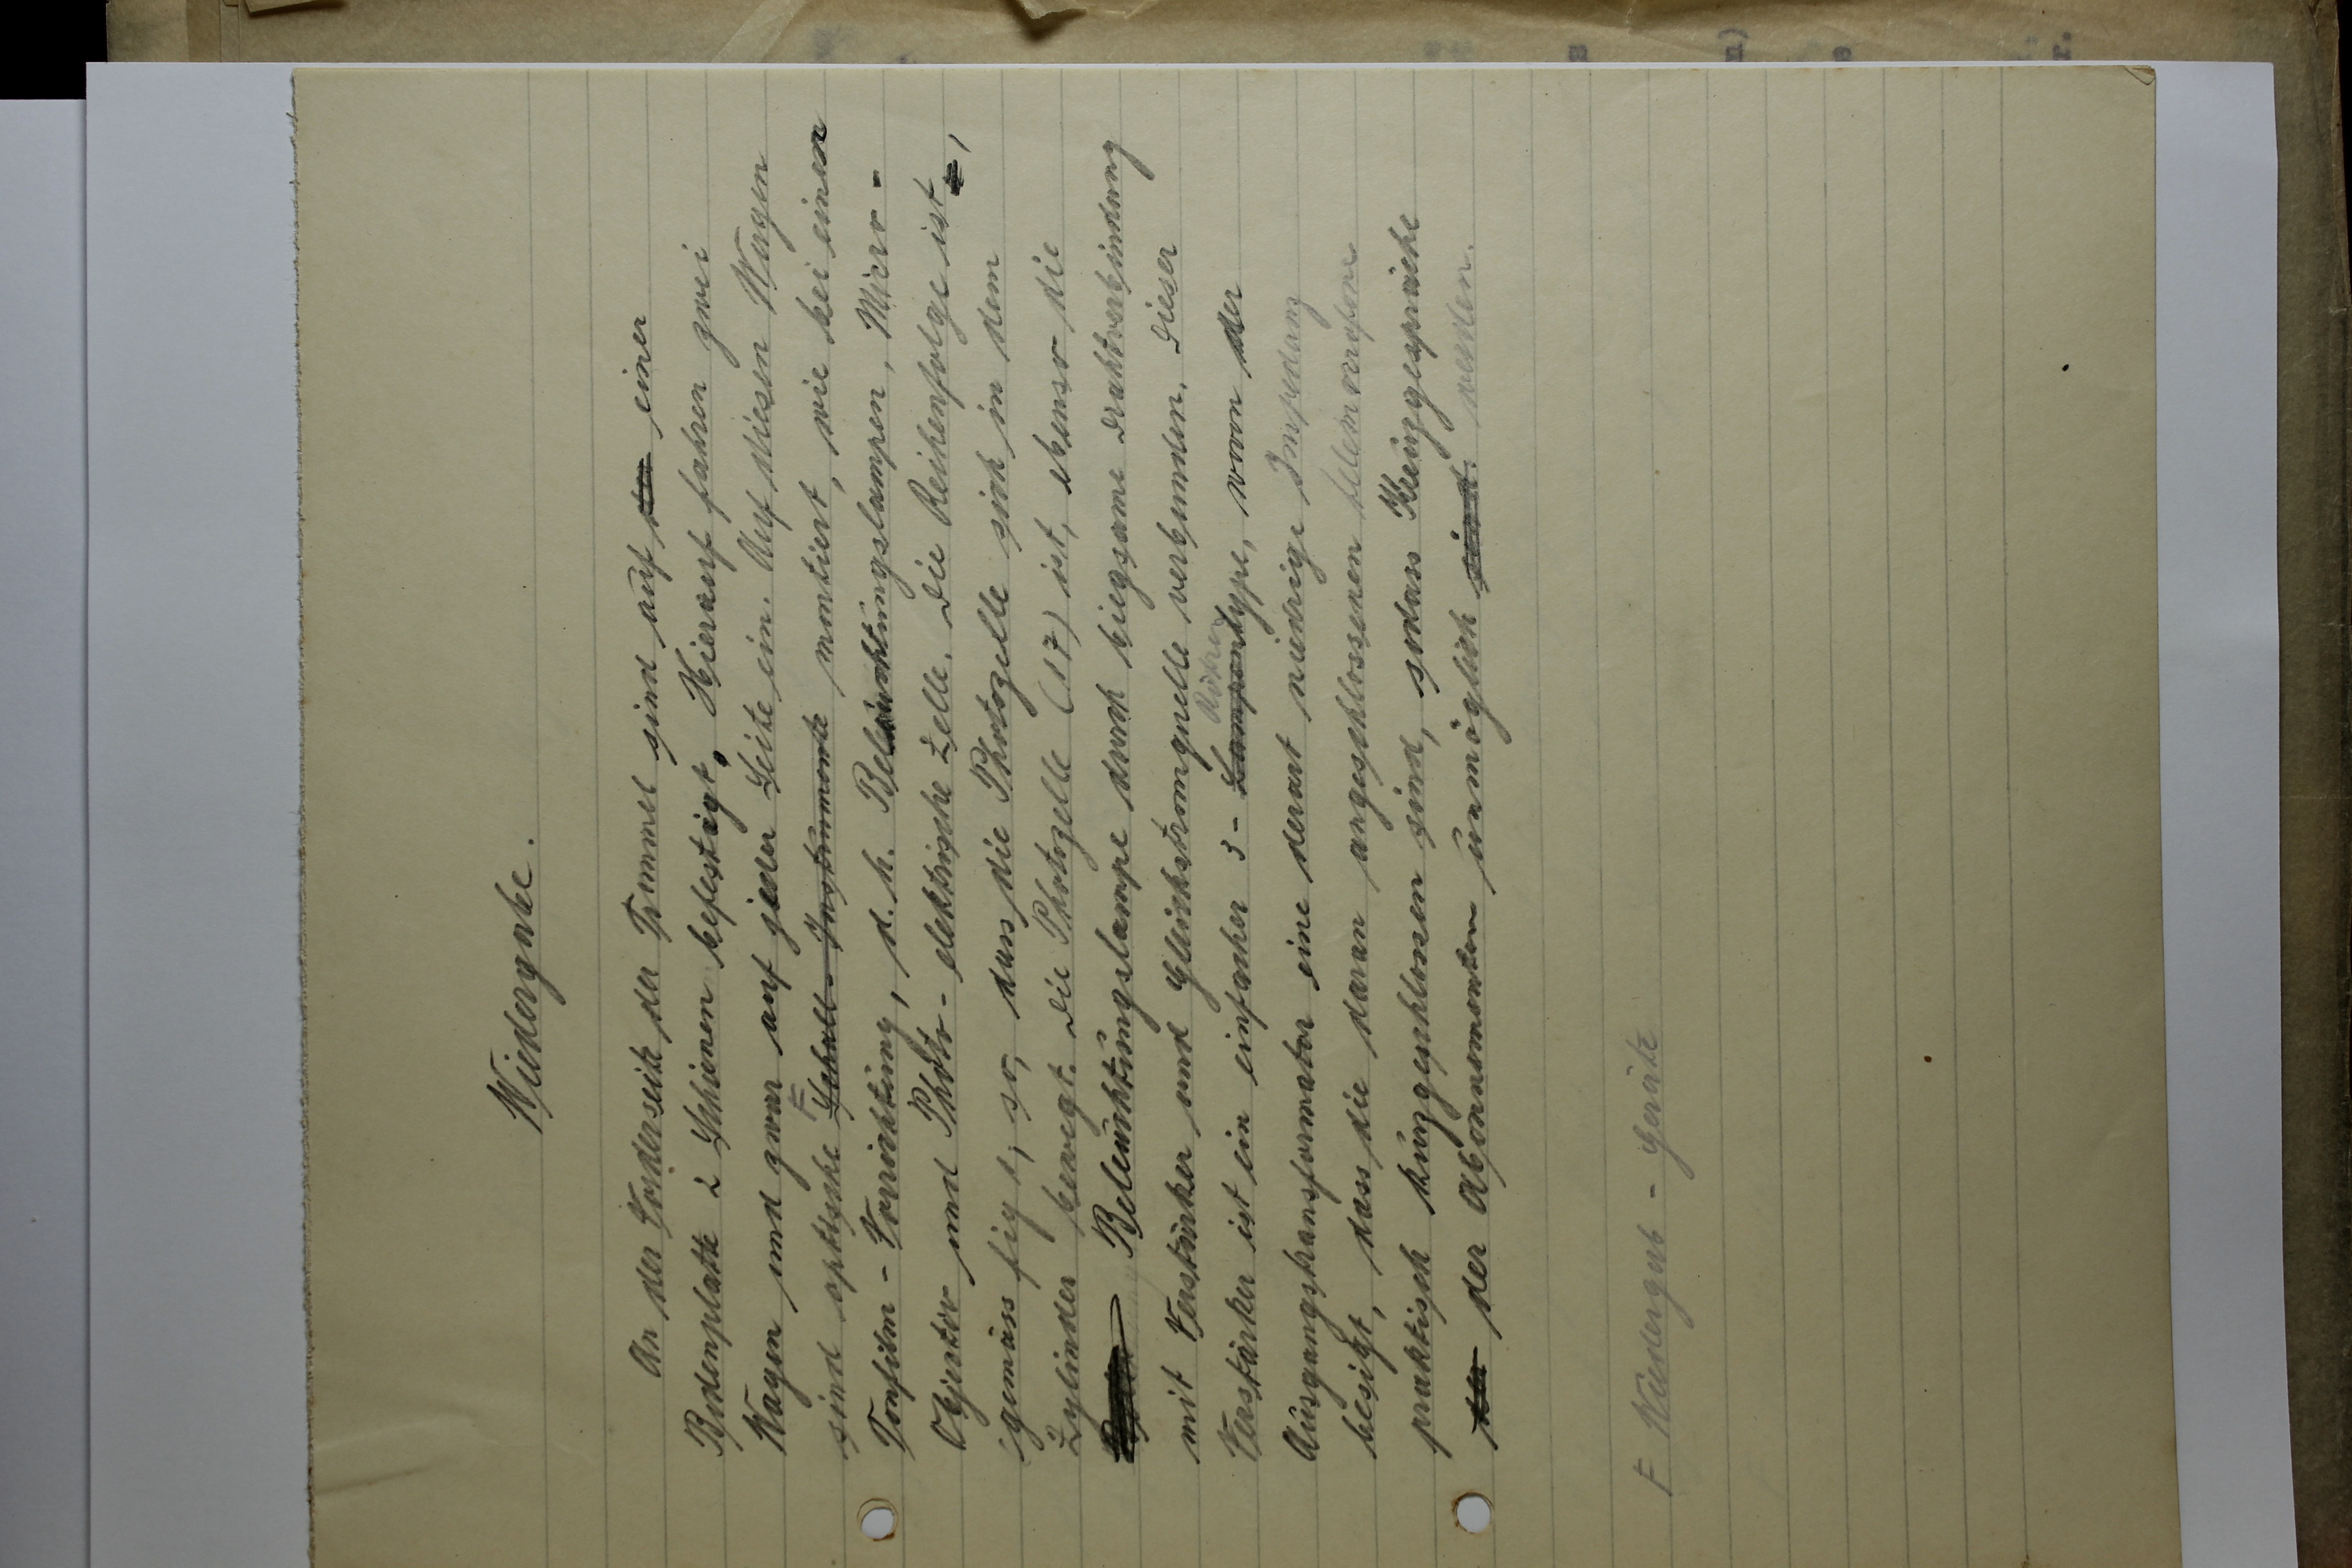 Wiedergabe.
An der Vorderseite der Trommel sind auf einer
Bodenplatte 2 Schienen befestigt. Hierauf fahren zwei
Wagen und zwar auf jeder Seite ein. Auf diesen Wagen
sind optische F Schall-Instrumente montiert, wie bei einer
Tonfilm-Vorrichtung, d.h. Beleuchtungslampen, Micro-
Objectiv und Photo-elektrische Zelle. Die Reihenfolge ist,
gemäss fig 1, so, dass die Photozelle sich in dem
Zylinder bewegt. Die Photozelle (17) ist, ebenso die
Beleuchtungslampe durch biegsame Drahtverbindung
mit Verstärker und Gleichstromquelle verbunden. Dieser
Röhren
Verstärker ist ein einfacher 3-Lampentype, wovon der
Ausgangstransformator eine derart niedrige Impedanz
besitzt, dass die daran angeschlossenen
praktisch kurzgeschlossen sind, sodass Kreuzgespräche
der der Abonnementen unmöglich sind. werden.
F Wiedergab-Geräte
n)
r.